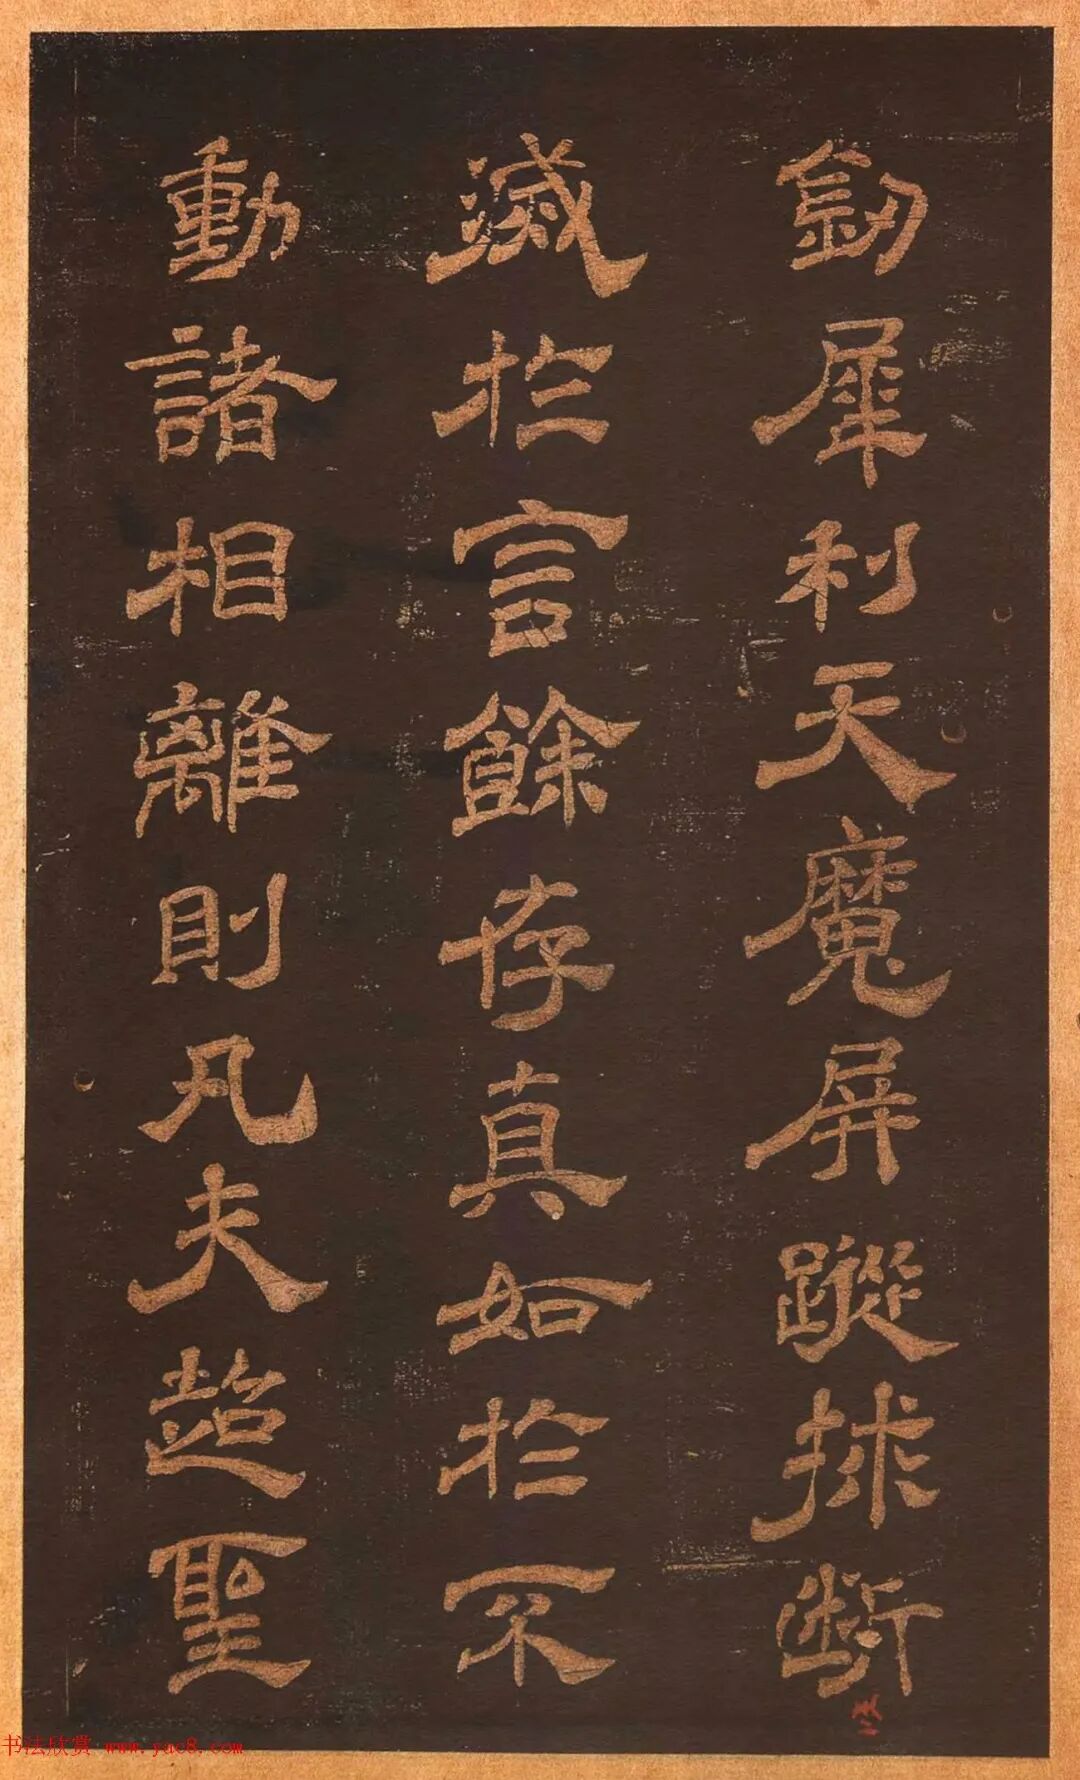 釰犀利天魔屏蹤捄斷
滅扵言餘存真如扵不
動諸相離則凡夫超聖
书法欣赏 www.yac8.com